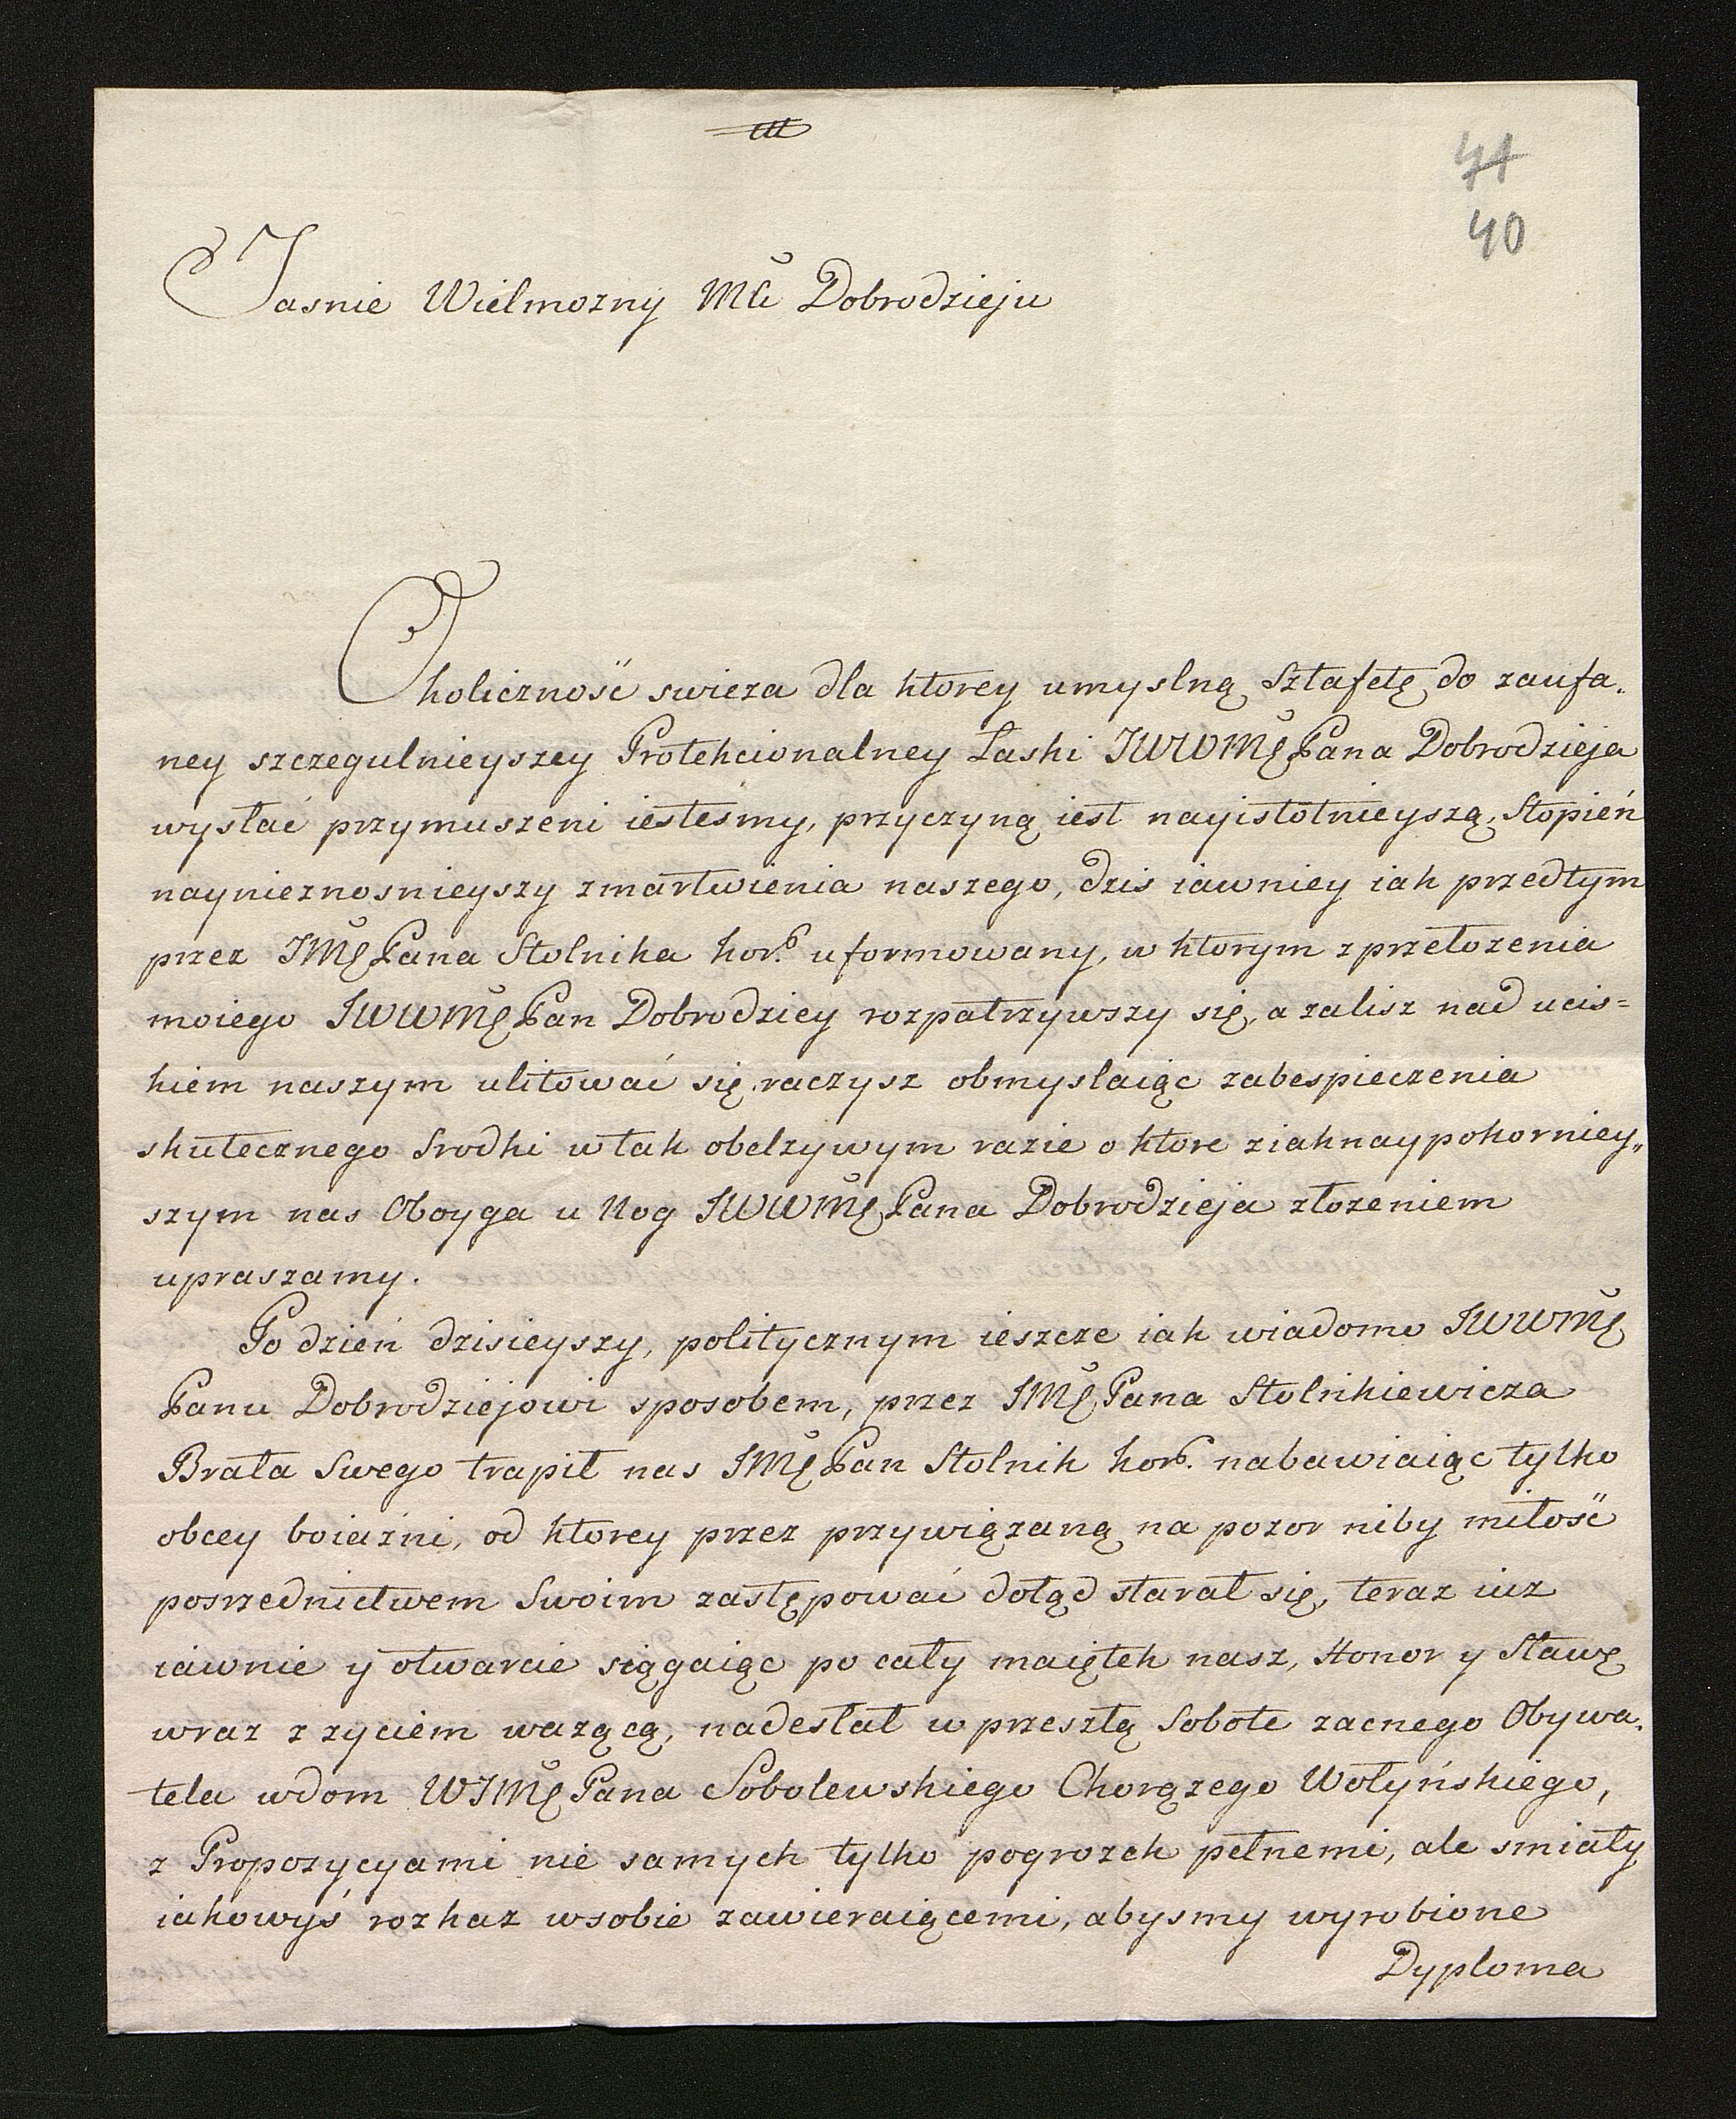 41
40
Jasnie Wielmozny Mći Dobrodzieju
Okoliczność swieza dla ktorey umyslną Sztafetę do zaufa„
ney szczegulnieyszey Protekcionalney Łaski JWWMę Pana Dobrodzieja
wysłać przymuszeni iestesmy, przyczyną iest nayistotnieyszą, Stopień
naynieznosnieyszy zmartwienia naszego, dzis iawniey iak przedtym
przez JMę Pana Stolnika kor. uformowany, w ktorym z przełozenia
moiego JWWMę Pan Dobrodziey rozpatrzywszy się, a zalisz nad ucis=
kiem naszym ulitować się raczysz obmyslaiąc zabespieczenia
skutecznego Srodki w tak obelzywym razie o ktore z iaknaypokorniey„
szym nas Oboyga u Nog JWWMę Pana Dobrodzieja złozeniem
upraszamy.
Po dzień dzisieyszy, politycznym ieszcze iak wiadomo JWWMę
Panu Dobrodziejowi sposobem, przez JMę Pana Stolnikiewicza
Brata Swego trapił nas JMę Pan Stolnik kor. nabawiaiąc tylko
obcey boiaźni, od ktorey przez przywiązaną na pozor niby miłość
posrzednictwem Swoim zastępować dotąd starał się, teraz iuz
iawnie y otwarcie sięgaiąc po cały maiętek nasz, Honor y Sławę
wraz z zyciem wazącą, nadesłał w przeszłą Sobote zacnego Obywa„
tela w dom WJMę Pana Sobolewskiego Chorązego Wołyńskiego,
z Propozycyami nie samych tylko pogrozek pełnemi, ale smiały
iakowyś rozkaz w sobie zawieraiącemi, abysmy wyrobione
Dyploma